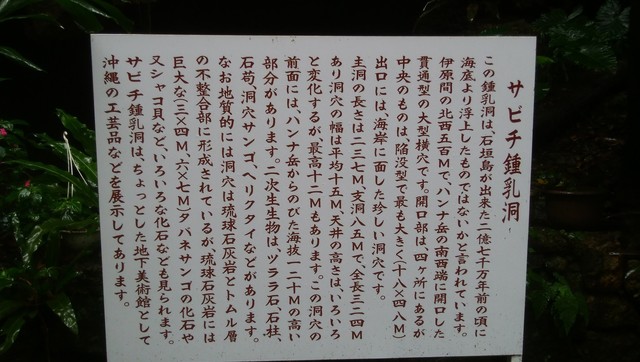 サビチ鍾乳洞
この鍾乳洞は、石垣島が出来た二億七千万年前の頃に
海底より浮上したものではないかと言われています。
伊原間の北西五百Mで、ハンナ岳の南西端に開口した
貫通型の大型横穴です。開口部は、四ヶ所にあるが
中央のものは陥没型で最も大きく(十八×四八M)
出口には、海岸に面した珍しい洞穴です。
主洞の長さは二三七M、支洞八五Mで、全長三二四M
あり洞穴の幅は平均十五M、天井の高さは、いろいろ
と変化するが最高十二Mもあります。この洞穴の
前面には、ハンナ岳からのびた海抜一二十Mの高い
部分があります。二次生生物は、ツララ石、石柱、
石筍、洞穴サンゴ、ヘリクタイなどがあります。
なお地質的には洞穴は琉球石灰岩とトムル層
の不整合部に形成されているが、琉球石灰岩には
巨大な(三×四M、六×七M)タバネサンゴの化石や
又シャコ貝など、いろいろな化石なども見られます。
サビチ鍾乳洞は、ちょっとした地下美術館として
沖縄の工芸品などを展示してあります。